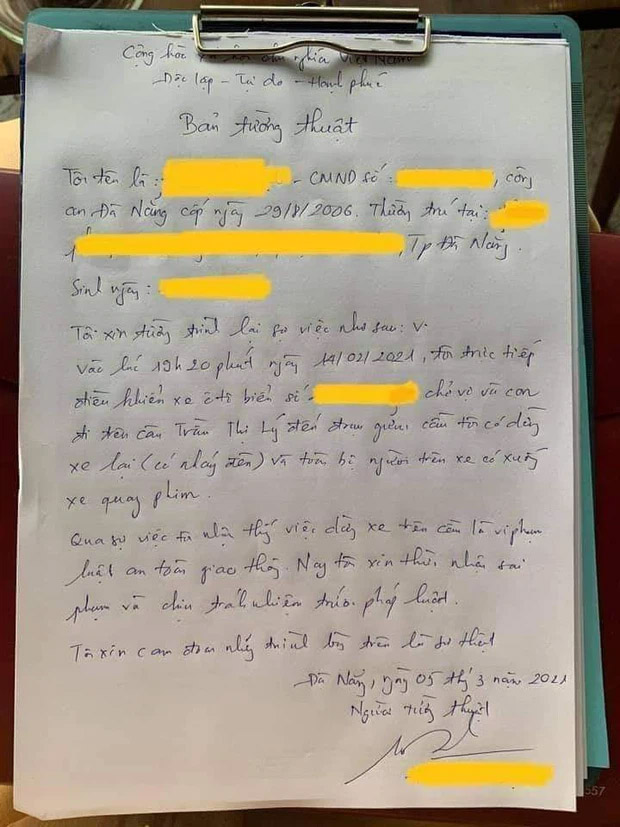 Cộng hòa xã hội chủ nghĩa Việt Nam
Độc lập - Tự do - Hạnh phúc
Bản tường thuật
Tôi tên là : - CMND số : , công
an Đà Nẵng cấp ngày 29/8/2006. Thường trú tại :
, Tp Đà Nẵng.
Sinh ngày :
Tôi xin tường trình lại sự việc như sau: V
vào lúc 19h 20 phút ngày 14/02/2021, tôi trực tiếp
điều khiển xe ô tô biển số chở vợ và con
đi trên cầu Trần Thị Lý đến đoạn giữa cầu tôi có dừng
xe lại (có nháy đèn) và toàn bộ người trên xe có xuống
xe quay phim.
Qua sự việc tôi nhận thấy việc dừng xe trên cầu là vi phạm
luật an toàn giao thông. Nay tôi xin thừa nhận sai
phạm và chịu trách nhiệm trước pháp luật.
Tôi xin cam đoan những trình bày trên là sự thật
Đà Nẵng, ngày 05 tháng 3 năm 2021
Người tường thuật
557